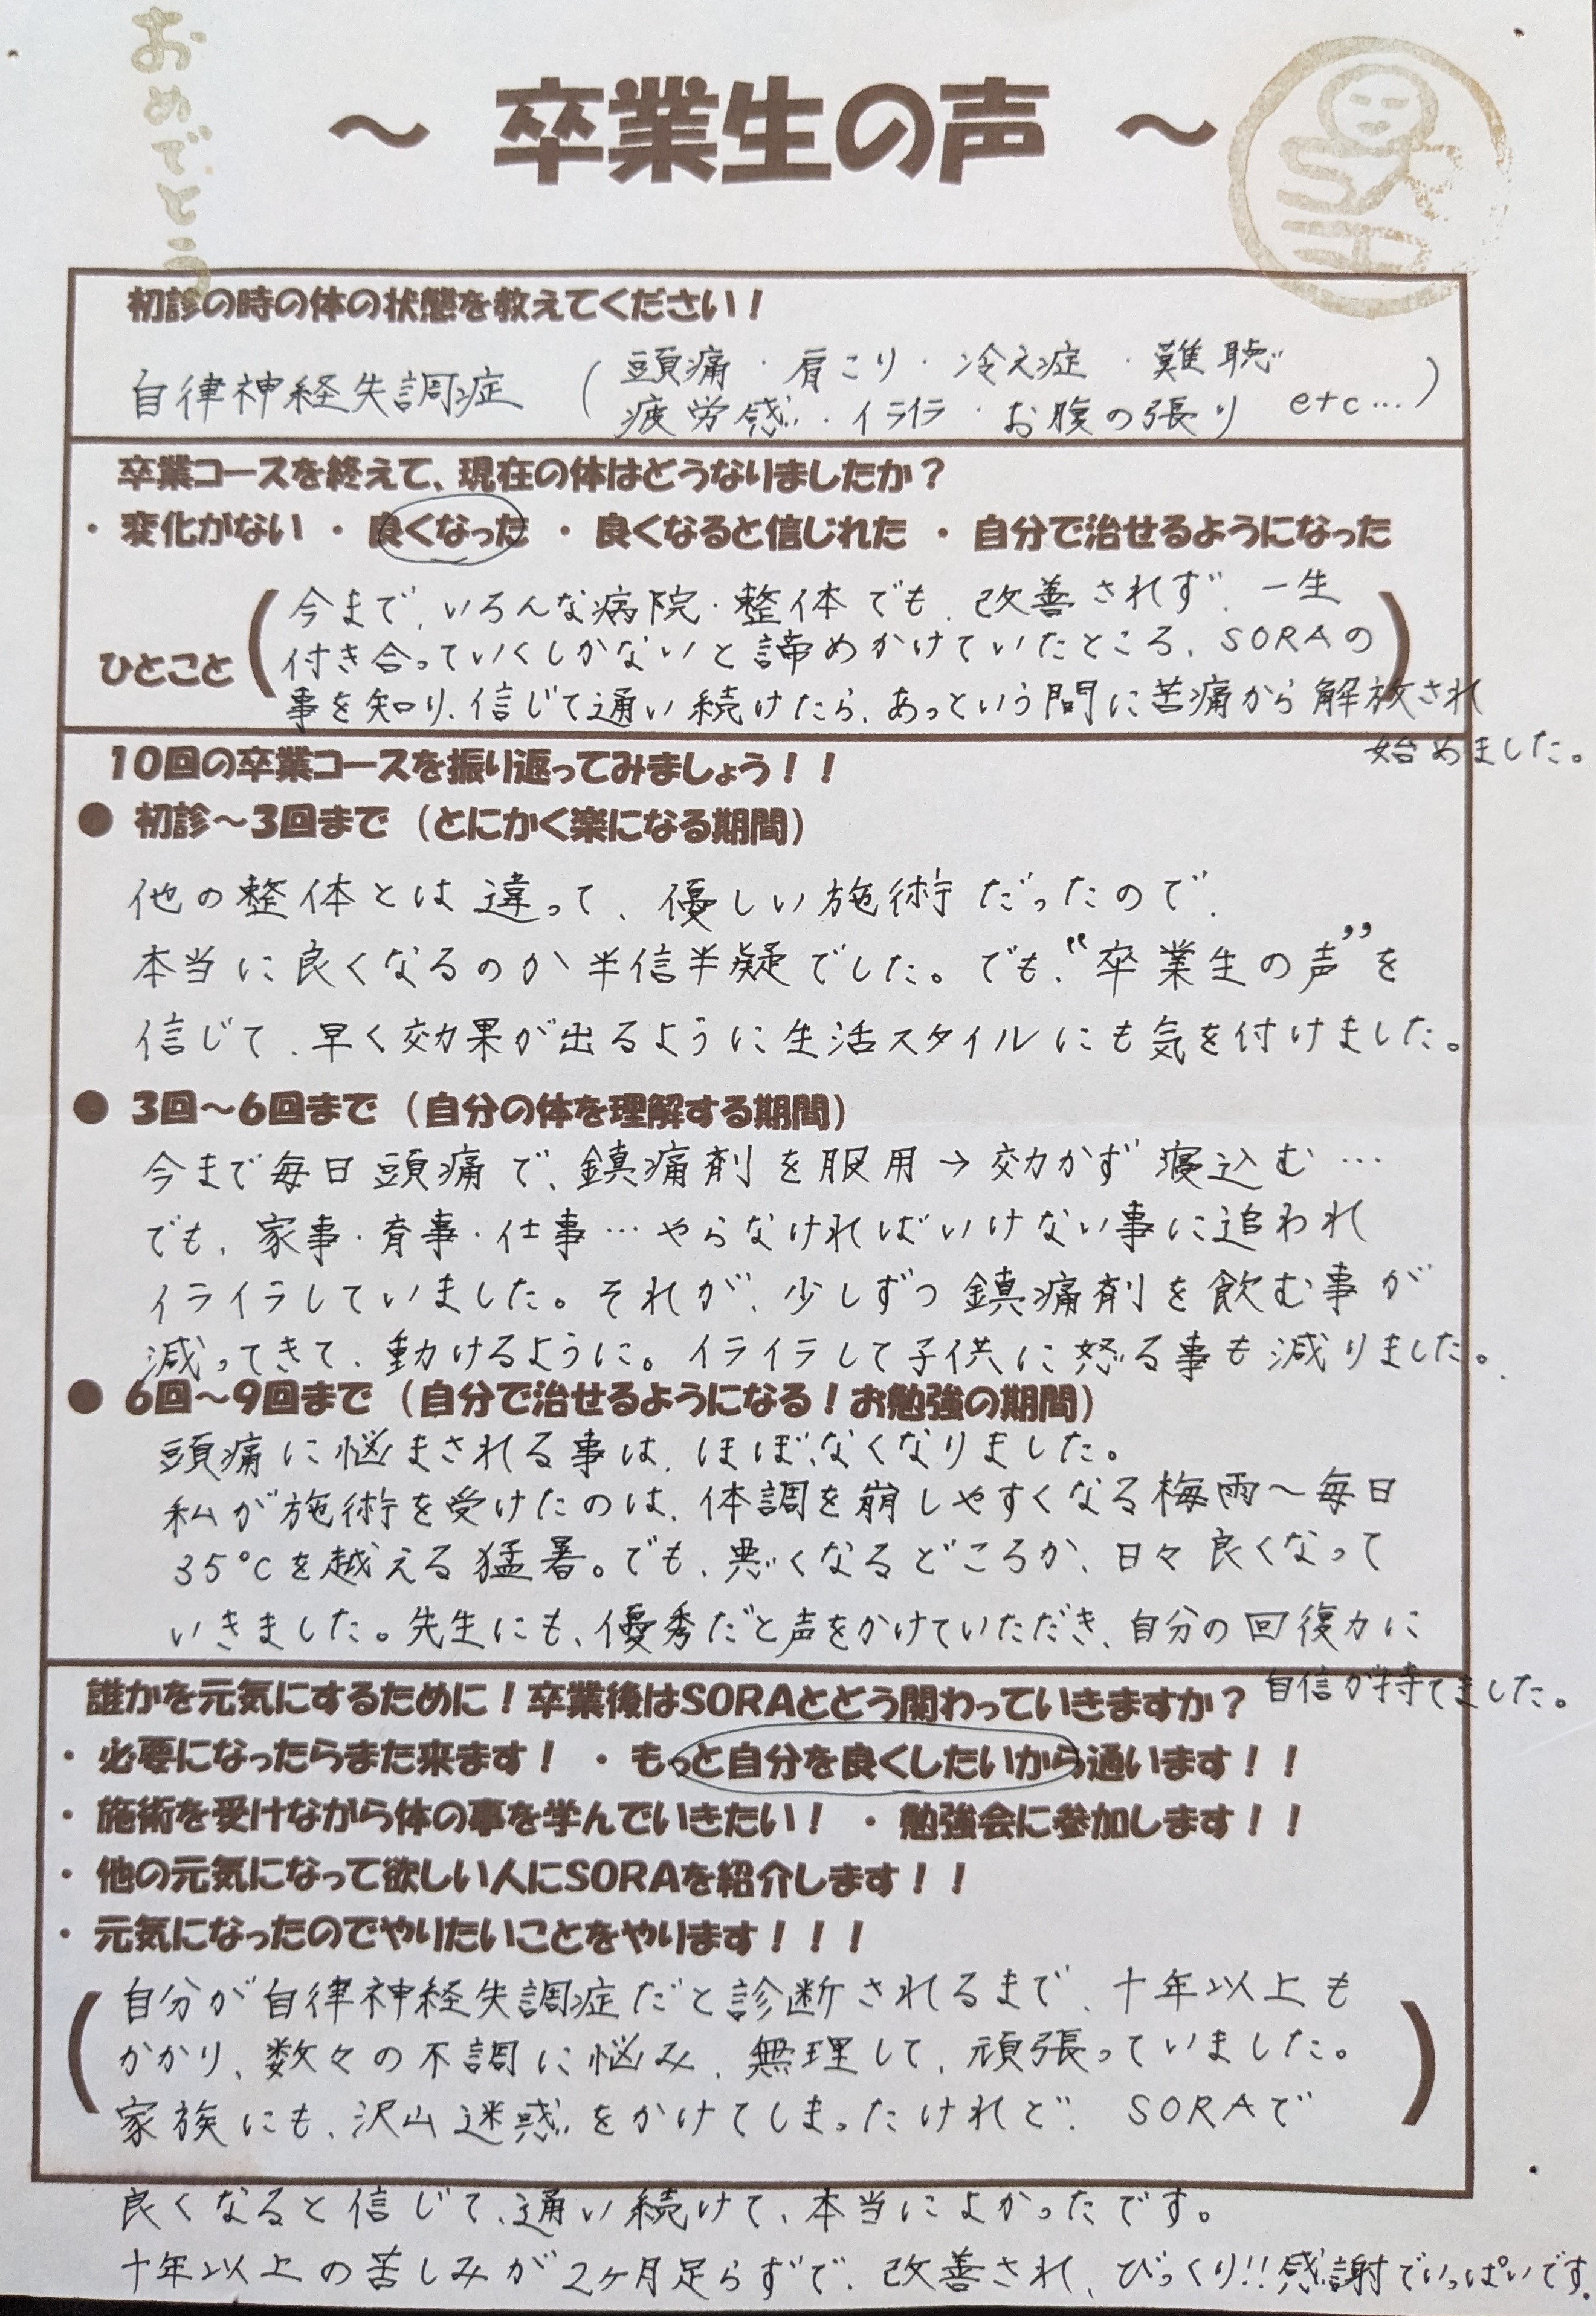 おめでとう
～ 卒業生の声 ～
初診の時の体の状態を教えてください！
自律神経失調症 （頭痛・肩こり・冷え症・難聴
疲労感・イライラ・お腹の張り etc…）
卒業コースを終えて、現在の体はどうなりましたか？
・変化がない ・良くなった ・良くなると信じれた ・自分で治せるようになった
ひとこと
（今まで、いろんな病院・整体でも、改善されず、一生
付き合っていくしかないと諦めかけていたところ、SORAの
事を知り、信じて通い続けたら、あっという間に苦痛から解放され
始めました。）
10回の卒業コースを振り返ってみましょう！！
● 初診～3回まで（とにかく楽になる期間）
他の整体とは違って、優しい施術だったので、
本当に良くなるのか半信半疑でした。でも、“卒業生の声”を
信じて、早く効果が出るように生活スタイルにも気を付けました。
● 3回～6回まで（自分の体を理解する期間）
今まで毎日頭痛で、鎮痛剤を服用→効かず寝込む…
でも、家事・育事・仕事…やらなければいけない事に追われ
イライラしていました。それが、少しずつ鎮痛剤を飲む事が
減ってきて、動けるように。イライラして子供に怒る事も減りました。
● 6回～9回まで（自分で治せるようになる！お勉強の期間）
頭痛に悩まされる事は、ほぼなくなりました。
私が施術を受けたのは、体調を崩しやすくなる梅雨～毎日
35℃を越える猛暑。でも、悪くなるどころか、日々良くなって
いきました。先生にも、優秀だと声をかけていただき、自分の回復力に
自信が持てました。
誰かを元気にするために！卒業後はSORAとどう関わっていきますか？
・必要になったらまた来ます！ ・もっと自分を良くしたいから通います！！
・施術を受けながら体の事を学んでいきたい！ ・勉強会に参加します！！
・他の元気になって欲しい人にSORAを紹介します！！
・元気になったのでやりたいことをやります！！！
（自分が自律神経失調症だと診断されるまで、十年以上も
かかり、数々の不調に悩み、無理して、頑張っていました。
家族にも、沢山迷惑をかけてしまったけれど、SORAで）
良くなると信じて、通い続けて、本当によかったです。
十年以上の苦しみが2ヶ月足らずで、改善され、びっくり!!感謝でいっぱいです。